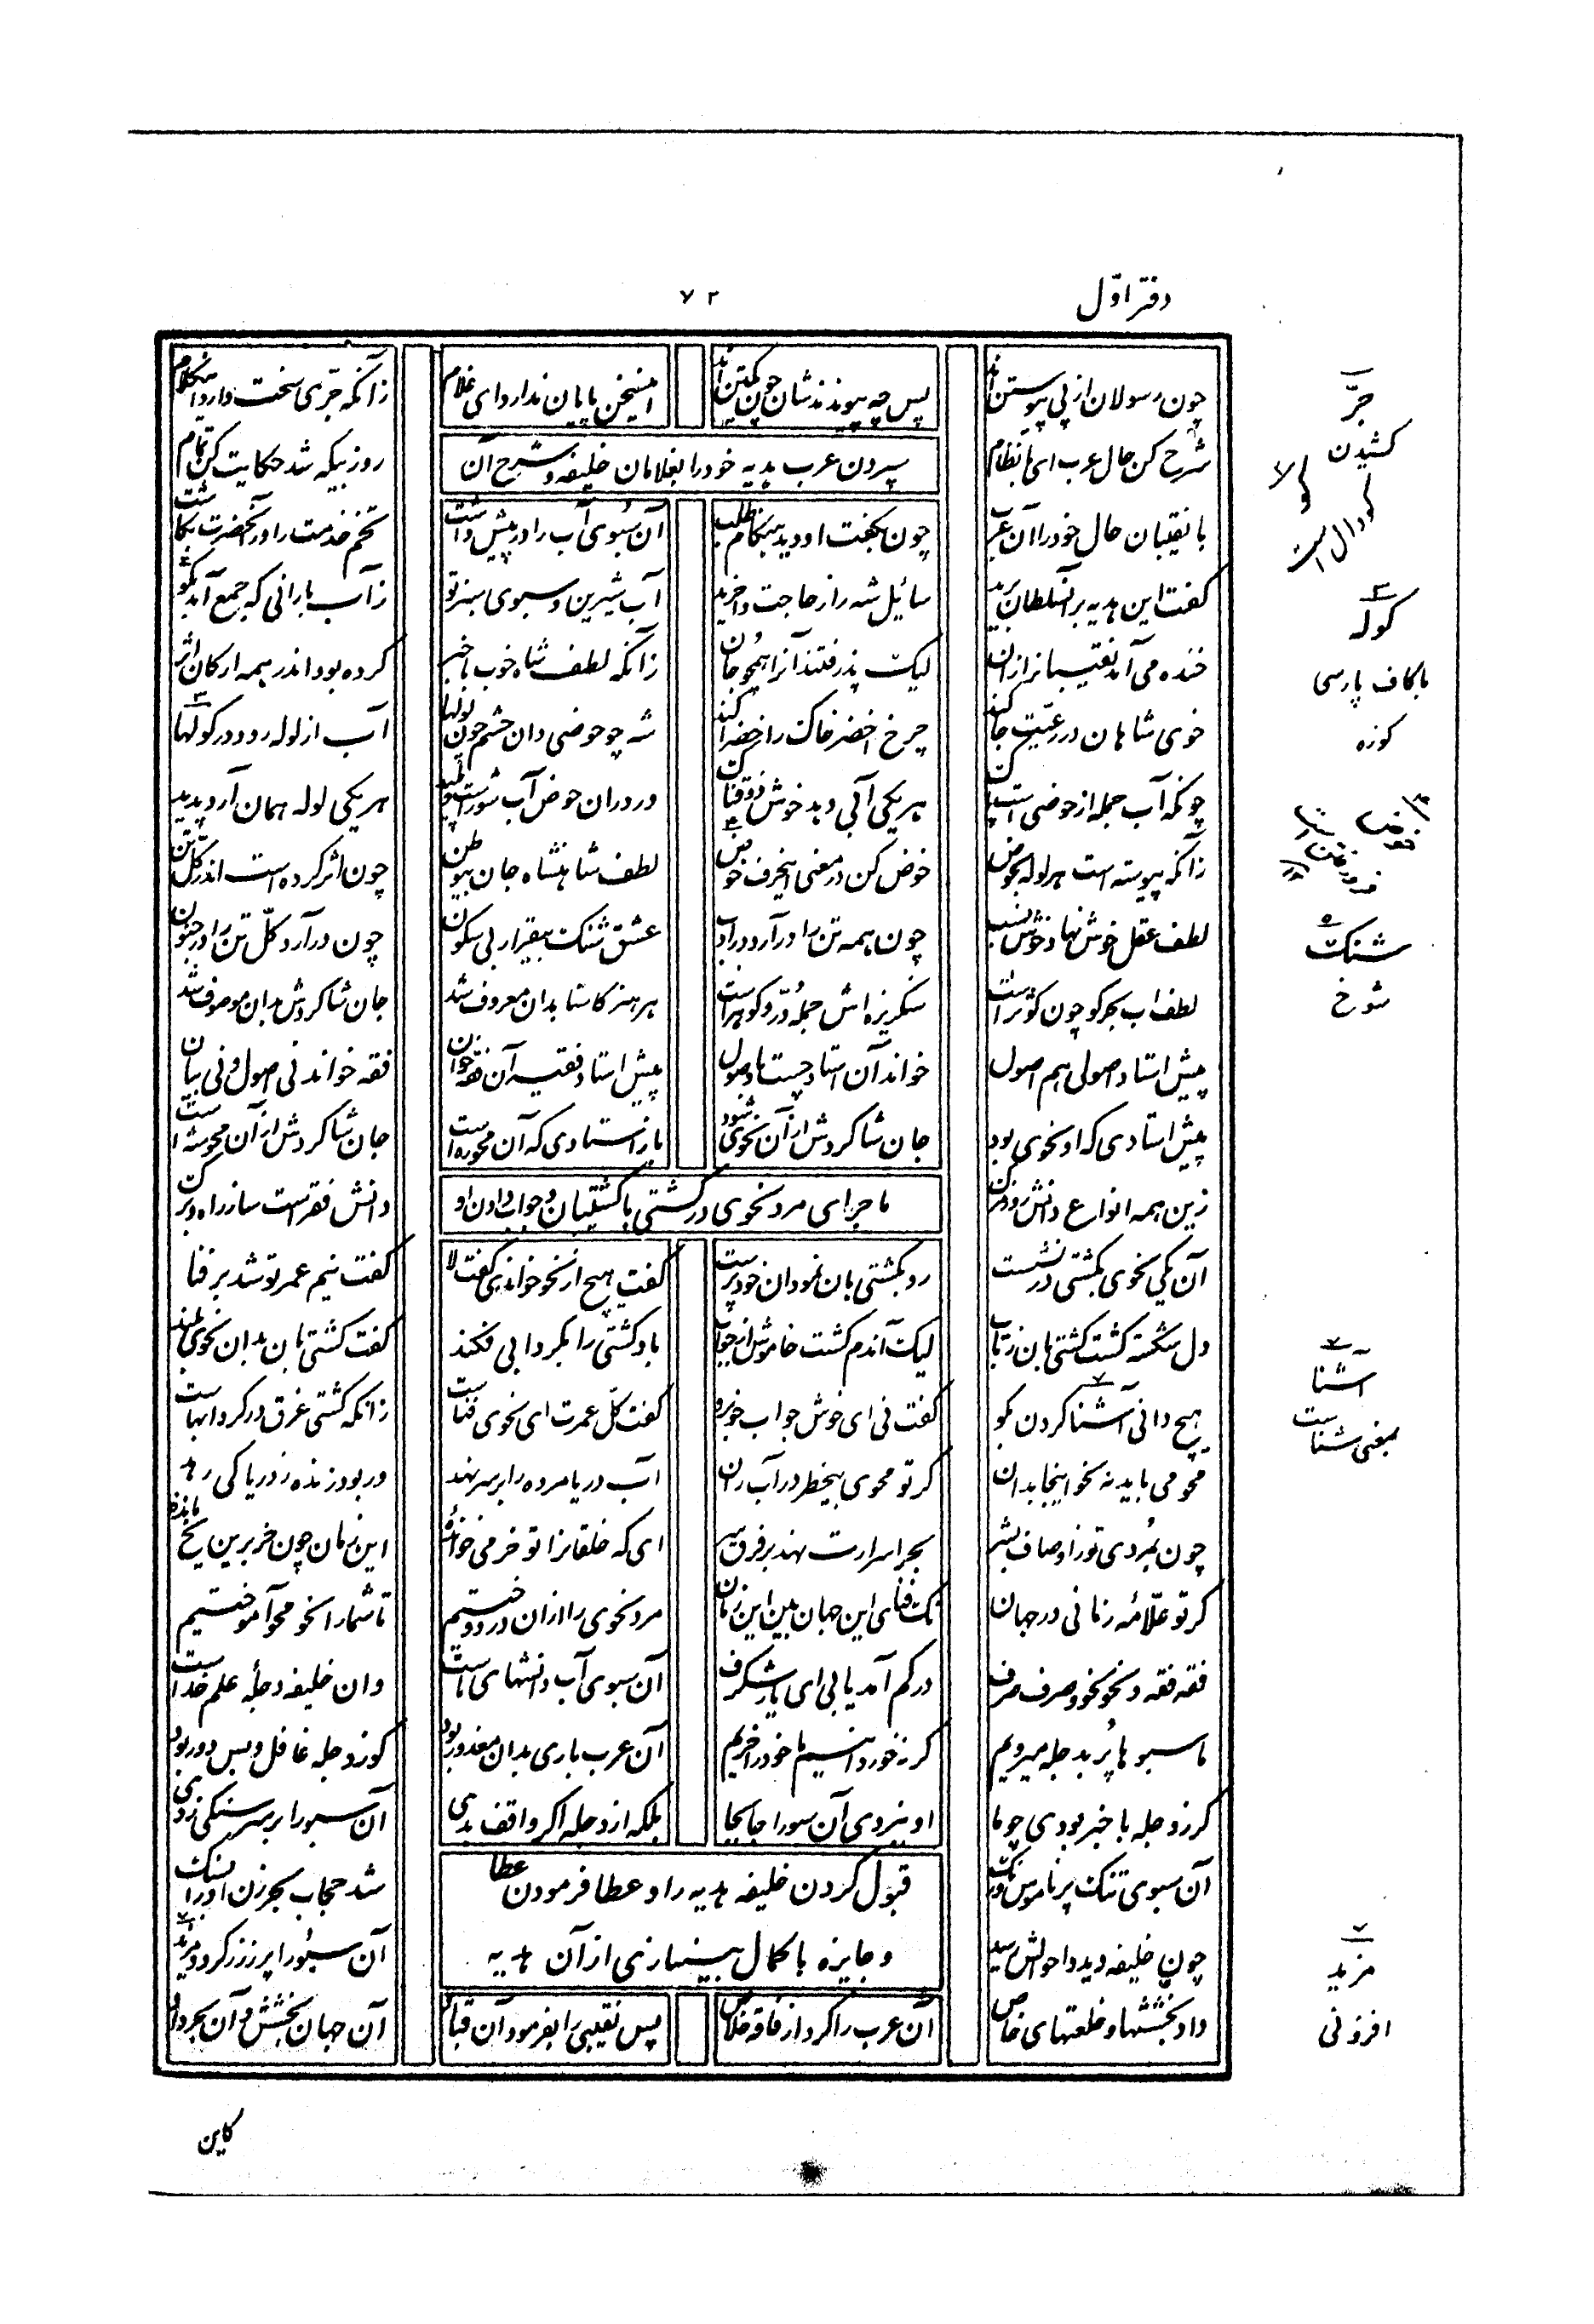 دفتر اوّل
۷۲
چون رسولان از پی پیوستن‌اند پس چه پیوندندشان چون یکتن‌اند اینسخن پایان ندارد ای غلام زانکه جرّی سخت دارد اینکلام
شرح کن حال عرب ای با نظام روز بیگه شد حکایت کن تمام
سپردن عرب هدیه خود را بغلامان خلیفه و شرح آن
با نقیبان حال خود را آن عرب چون بگفت او دید هنگام طلب آن سبوی آب را در پیش داشت تخم خدمت را در آنحضرت بکاشت
گفت این هدیه بر آنسلطان برید سائل شه را ز حاجت واخرید آب شیرین و سبوی سبز نو ز آب بارانی که جمع آمد بگو
خنده می آمد نقیبانرا از ان لیک پذرفتند آنرا همچو جان زانکه لطف شاه خوب باخبر کرده بود اندر همه ارکان اثر
خوی شاهان در رعیّت جا کند چرخ اخضر خاک را خضرا کند شه چو حوضی دان حشم چون لولها آب از لوله رود در کولها
چونکه آب جمله از حوضی است پاک هر یکی آبی دهد خوش ذوقناک ور در ان حوض آب شور است و پلید هر یکی لوله همان آرد پدید
زانکه پیوسته است هر لوله بحوض خوض کن در معنی اینحرف خوض لطف شاهنشاه جان بیوطن چون اثر کرده است اندر کلّ تن
لطف عقل خوش نهاد خوش نسب چون همه تن را در آرد در ادب عشق شنگ بیقرار بی سکون چون در آرد کلّ تن را در جنون
لطف آب بحر کو چون کوثر است سنگریزه اش جمله دُرّ و گوهر است هر هنر کاستا بدان معروف شد جان شاگردش بدان موصوف شد
پیش استاد اصولی هم اصول خواند آن استاد چست با وصول پیش استاد فقیه آن فقه خوان فقه خواند نی اصول و نی بیان
پیش استادی که او نحوی بود جان شاگردش از آن نحوی شود باز استادی که آن محو ره است جان شاگردش از آن محو شه است
زین همه انواع دانش روز مرگ دانش فقر است ساز راه و برگ
ماجرای مرد نحوی در کشتی با کشتیبان و جواب دادن او
آن یکی نحوی بکشتی در نشست رو بکشتی بان نمود آن خودپرست گفت هیچ از نحو خواندی گفت لا گفت نیم عمر تو شد بر فنا
دل شکسته گشت کشتی بان ز تاب لیک آندم گشت خاموش از جواب باد کشتی را بگردابی فکند گفت کشتی بان بدان نحوی بلند
هیچ دانی آشنا کردن بگو گفت نی ای خوش جواب خوبرو گفت کلّ عمرت ای نحوی فناست زانکه کشتی غرق در گردابهاست
محو می باید نه نحو اینجا بدان گر تو محوی بیخطر در آب ران آب دریا مرده را بر سر نهد ور بود زنده ز دریا کی رهد
چون بمُردی تو ز اوصاف بشر بحر اسرارت نهد بر فرق سر ای که خلقانرا تو خر می خوانده این زمان چون خر برین یخ مانده
گر تو علّامه زمانی در جهان نک فنای این جهان بین این زمان مرد نحوی را از ان در دوختیم تا شما را نحو محو آموختیم
فقه فقه و نحو نحو و صرف صرف در کم آمد یابی ای یار شگرف آن سبوی آب دانشهای ماست وان خلیفه دجلهٔ علم خداست
ما سبوها پُر بدجله میرویم گر نه خر دانیم ما خود را خریم آن عرب باری بدان معذور بود کو ز دجله غافل و بس دور بود
گر ز دجله با خبر بودی چو ما او نبردی آن سبو را جابجا بلکه از دجله اگر واقف بدی آن سبو را بر سر سنگی زدی
آن سبوی تنگ پر ناموس و رنگ شد حجاب بحر زن او را بسنگ
قبول کردن خلیفه هدیه را و عطا فرمودن عطا
و جایزه با کمال بینیازی از آن هدیه
چون خلیفه دید و احوالش شنید آن سبو را پر ز زر کرد و مزید
داد بخششها و خلعتهای خاص آن عرب را کرد از فاقه خلاص پس نقیبی را بفرمود آن قباد آن جهان بخشش و آن بحر داد
کاین
جرّ
کشیدن
کوله
با کاف پارسی
کوزه
شنگ
شوخ
آشنا
بمعنی شناست
مزید
افزونی